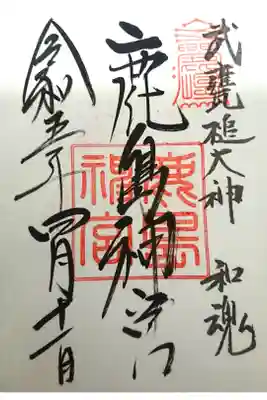 武甕槌大神 和魂
鹿島神宮
令和五年四月十一日
鹿島神宮